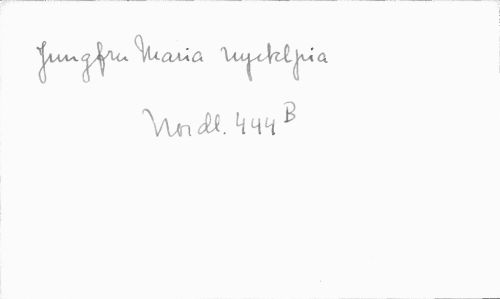 Jungfru Maria nycklpia
Nordl. 444 B